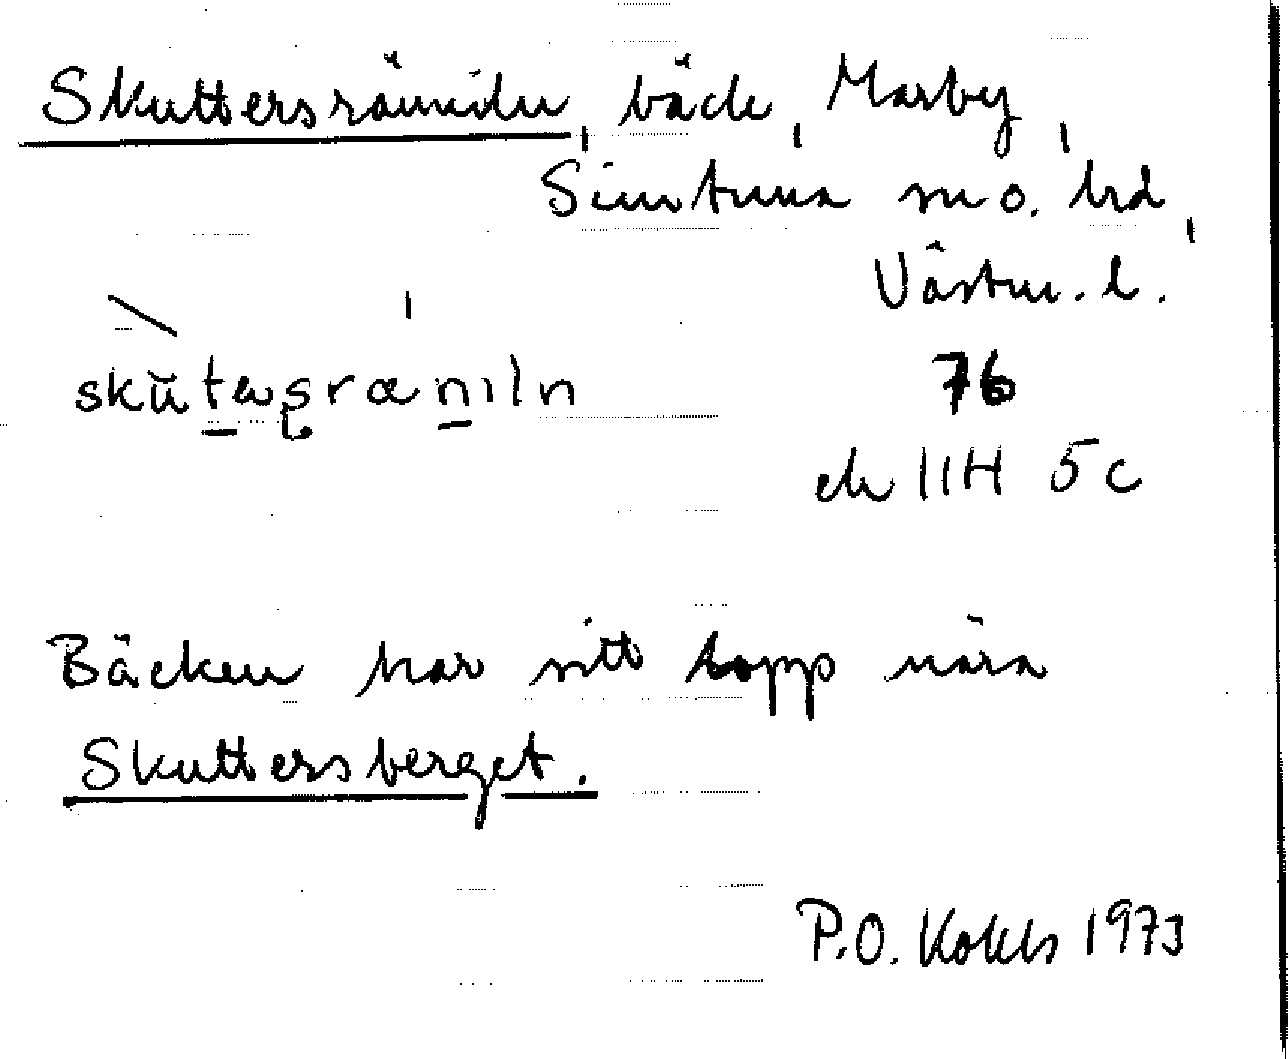 Skuttersrännilen, bäck, Marby,
Simtuna sn o. hrd,
Västm. l.
skŭtеʂræniln
76
ek 11H 5c
Bäcken har sitt lopp nära
Skuttersberget.
P.O. 1973